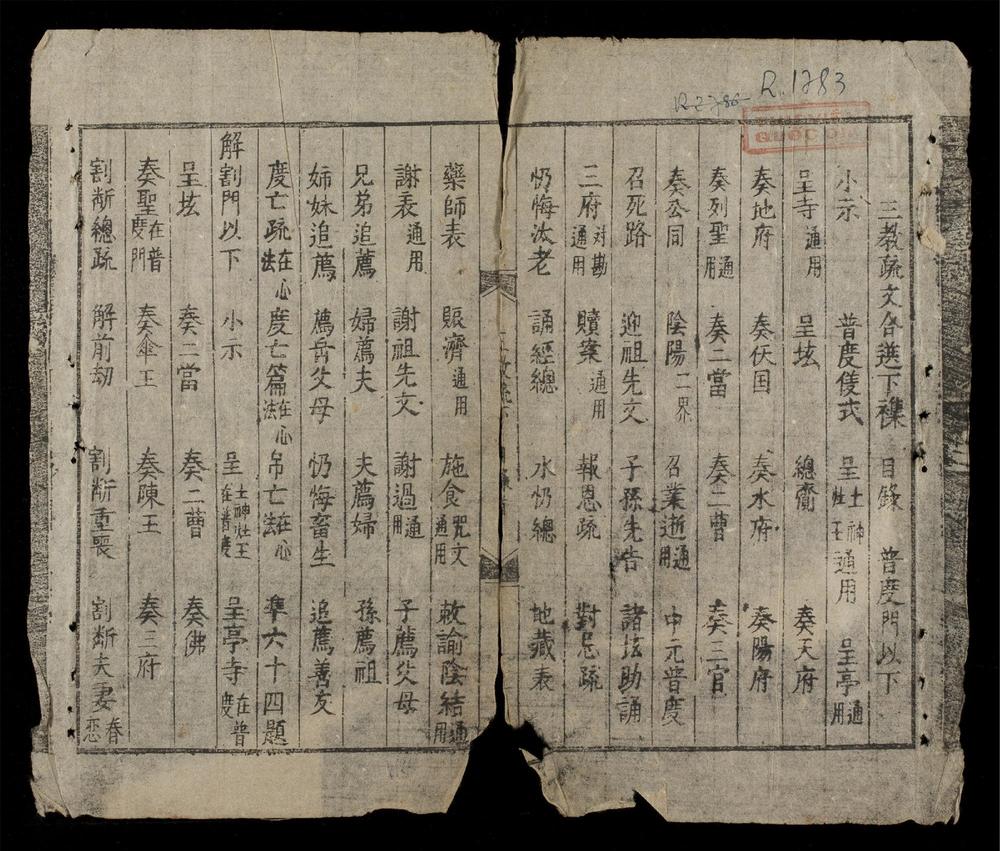 R.1783
QUỐC GIA
三教疏文合選下襍目錄 普度門以下
小示 普度隻式 呈土神灶王通用 呈亭通用
呈寺通用 呈坛 總賷 奏天府
奏地府 奏伏国 奏水府 奏陽府
奏列聖通用 奏二當 奏二曹 奏三官
奏公同 陰陽二界 召業逝通用 中元普度
召死路 迎祖先文 子孫先告 諸坛助誦
三府对勘通用 贖案通用 報恩疏 對忌疏
忉悔汰老 誦經總 水忉總 地藏表
藥師表 賑濟通用 施食咒文通用 敕諭陰結通用
謝表通用 謝祖先文 謝過通用 子薦父母
兄弟追薦 婦薦夫 夫薦婦 孫薦祖
姉妹追薦 薦岳父母 忉悔畜生 追薦善友
度亡疏在心法 度亡篇在心法 吊亡在心法 準六十四題
解割門以下 小示 呈土神灶王在普度 呈亭寺在普度
呈坛 奏二當 奏二曹 奏佛
奏聖在普度門 奏伞王 奏陳王 奏三府
割断總疏 解前劫 割断重喪 割断夫妻春恋